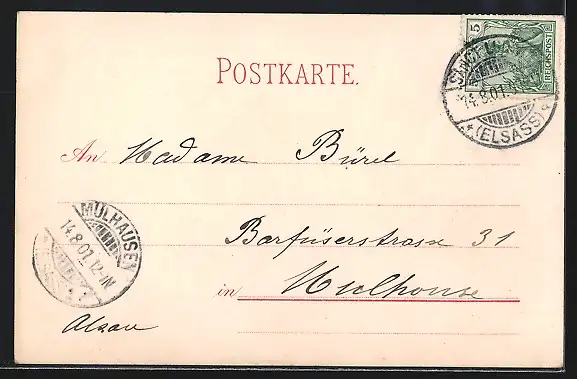 5
REICHSPOST
SANCT
14.8.01.
*(ELSASS)*
POSTKARTE.
An Madame Bürel
MÜLHAUSEN
14.8.01.12-1N
Barfüserstrasse 31
in Mulhouse
Alsace